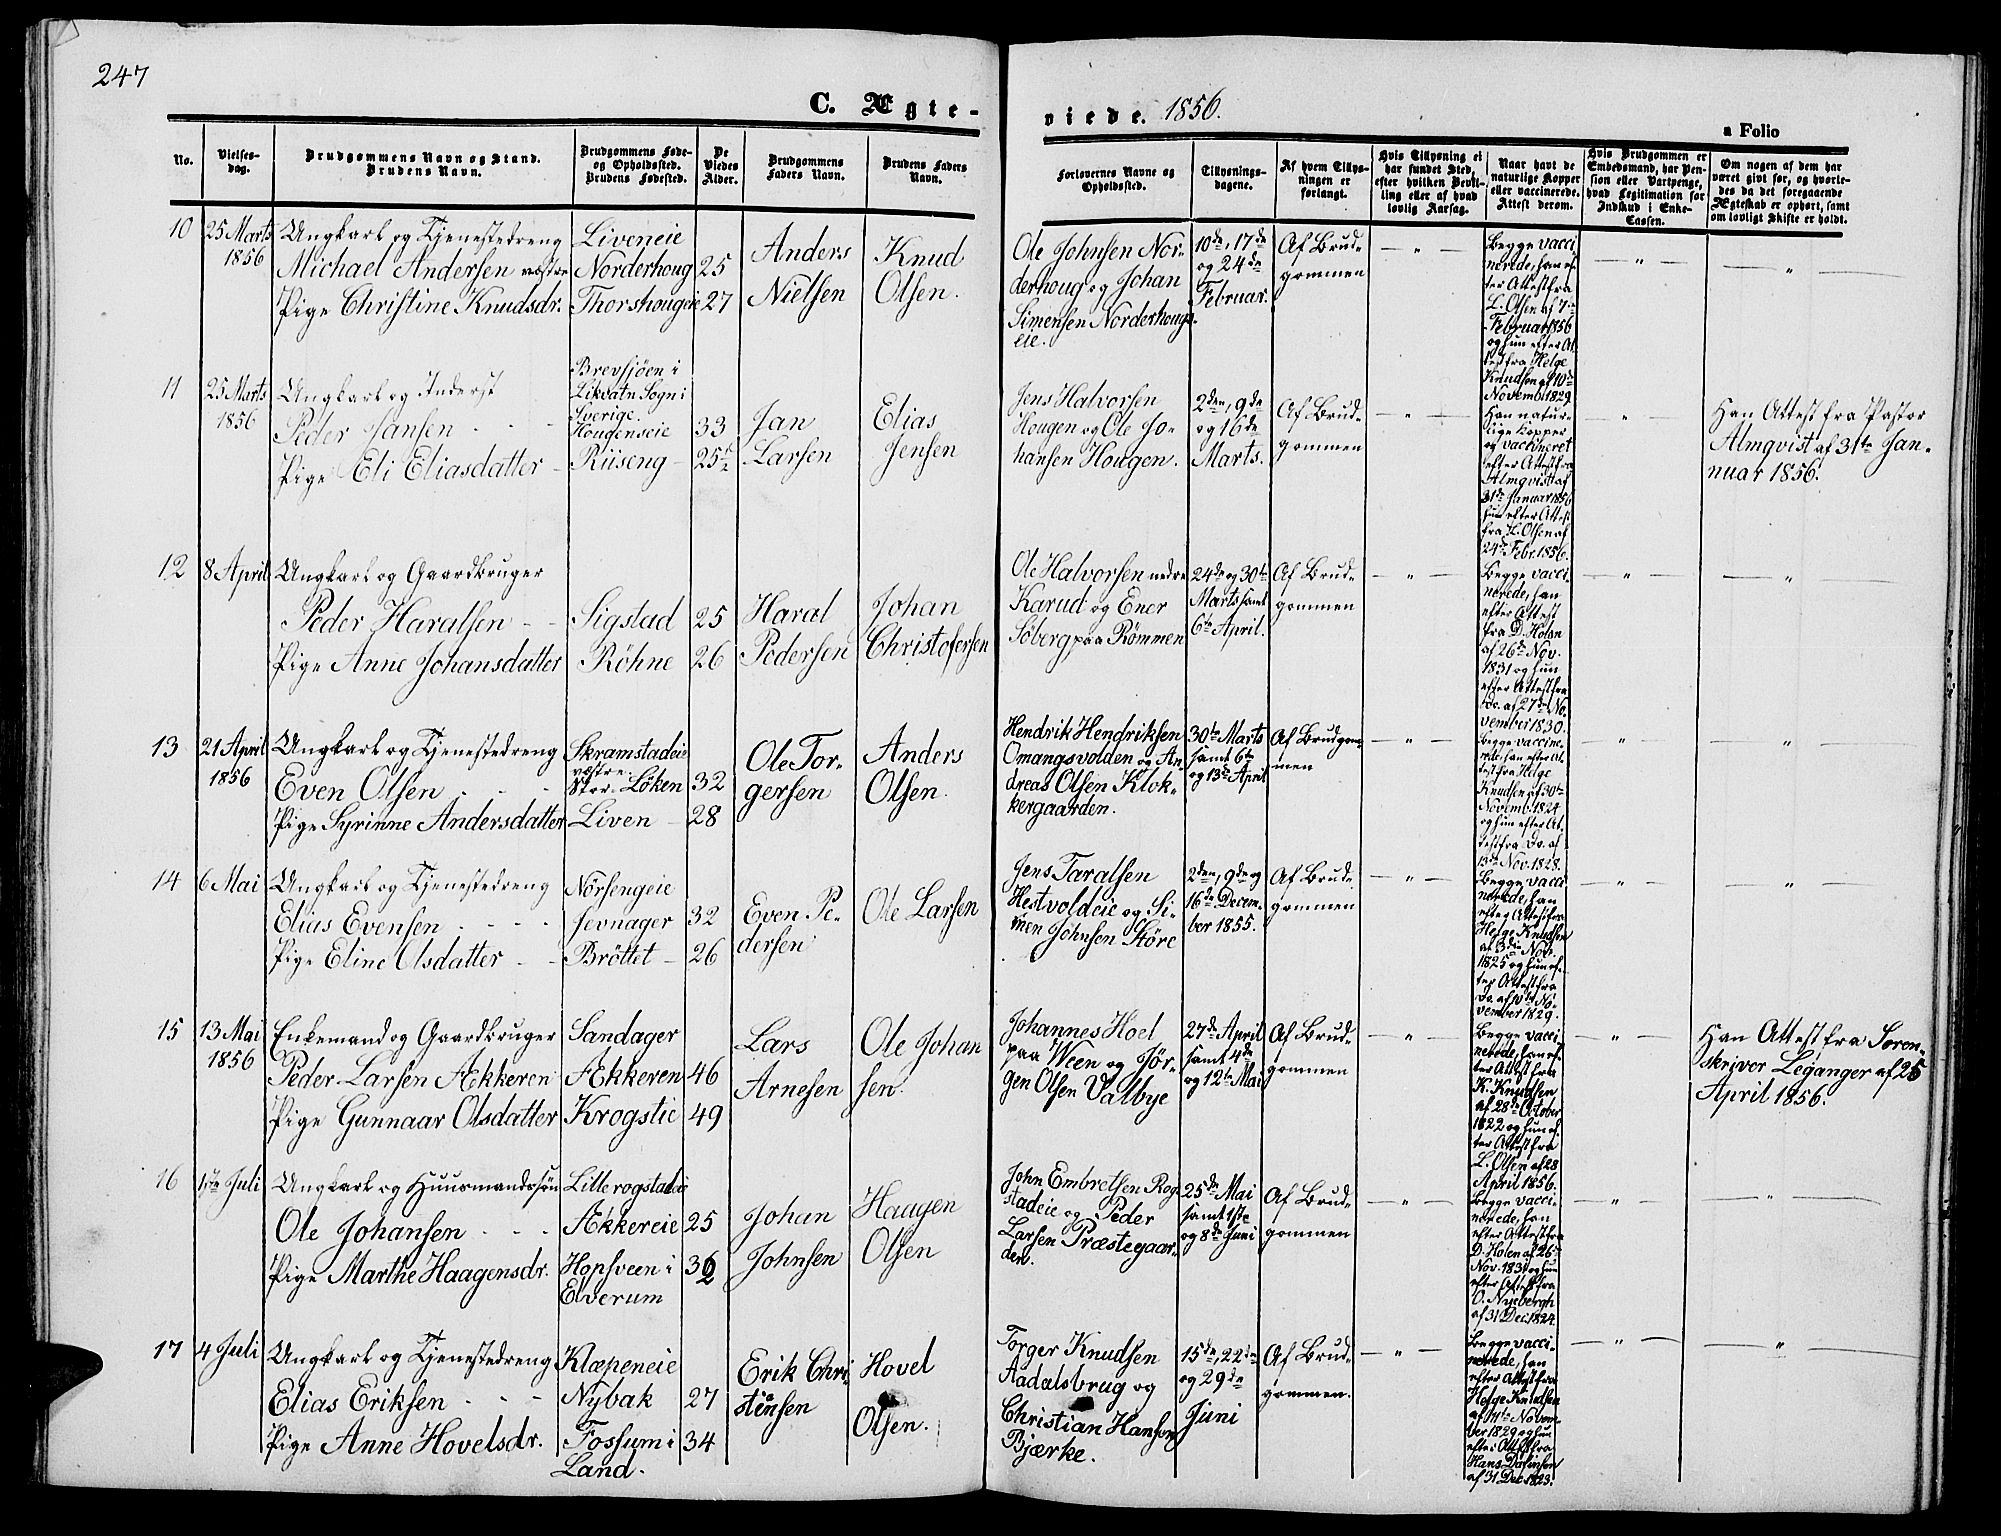 247
C. Ægte-
viede. 1856.
a Folio
No.
Vielses-
dag.
Brudgommens Navn og Stand.
Brudens Navn.
Brudgommens Føde-
og Opholdssted.
Brudens Fødested.
De
Viedes
Alder.
Brudgommens
Faders Navn.
Brudens Faders
Navn.
Forlovernes Navne og
Opholdssted.
Tillysnings-
dagene.
Af hvem Tillys-
ningen er
forlangt.
Hvis Tillysning ei
har fundet Sted,
efter hvilken Bevil-
ling eller af hvad
lovlig Aarsag.
Naar havt de
naturlige Kopper
eller vaccinerede.
Attest derom.
Hvis Brudgommen er
Embedsmand, har Pen-
sion eller Vartpenge,
hvad Legitimation for
Indskud i Enke-
Cassen.
Om nogen af dem har
været givt før, og hvorle-
des da det foregaaende
Ægteskab er ophørt, samt
om lovligt Skifte er holdt.
10
25 Marts
1856
Ungkarl og Tjenestedreng
Michael Andersen vestre
Pige Christine Knudsdr.
Liveneie
Norderhoug
Thorshougeie
25
27
Anders
Nielsen
Knud
Olsen.
Ole Johnsen Nor-
derhoug og Johan
Simensen Norderhougs-
eie.
10de, 17de
og 24de
Februar.
Af Brud-
gommen
— " —
Begge vacci
nerede, han ef-
ter Attest fra
L. Olsen af 7de
Februar 1856
og hun efter At-
test fra Helge
Knudsen af 10de
Novemb. 1829
— " —
— " —
11
25 Marts
1856
Ungkarl og Inderst
Peder Jansen
Pige Eli Eliasdatter
Brevsjöen i
Likvatn Sogn i
Sverige.
Hougenseie
Riiseng
33
25½
Jan
Larsen
Elias
Jensen
Jens Halvorsen
Hougen og Ole Jo-
hansen Hougen.
2den, 9de
og 16de
Marts.
Af Brud-
gommen
— " —
Han natur-
lige Kopper
og vaccineret
efter Attest fra
Almqvist af
31te Januar 1856
hun efter Attest
fra L. Olsen af
24de Febr. 1856.
"
Han Attest fra Pastor
Almqvist af 31te Jan-
nuar 1856.
12
8 April
Ungkarl og Gaardbruger
Peder Haralsen
Pige Anne Johansdatter
Sigstad
Röhne
25
26
Haral
Pedersen
Johan
Christofersen
Ole Halvorsen nedre
Karud og Ener
Söberg paa Römmen
24de og 30te
Marts samt
6te April.
Af Brud-
gommen
— " —
Begge vacci-
nerede, han
efter Attest
fra D. Holen
af 26de Nov.
1831 og hun
efter Attest fra
Do. af 27de No-
vember 1830.
— " —
— " —
13
21 April
1856
Ungkarl og Tjenestedreng
Even Olsen
Pige Syrinne Andersdatter
Skramstadeie
vestre
Stor-Löken
Liven
32
28
Ole Tor-
gersen
Anders
Olsen.
Hendrik Hendriksen
Omangsvolden og An-
dreas Olsen Klok-
kergaarden.
30te Marts
samt 6te
og 13de April
Af Brudgom-
men
— " —
Begge vaccine-
rede, han efter At-
test fra Helge
Knudsen af 30te
Novemb. 1824
og hun efter At-
test fra Do. af
13de Nov. 1828.
"
"
14
6 Mai
Ungkarl og Tjenestedreng
Elias Evensen
Pige Eline Olsdatter
Nörsengeie
Jevnager
Bröttet
32
26
Even Pe-
dersen
Ole Larsen
Jens Taralsen
Hestvoldeie og Si-
men Johnsen Störe
2den, 9de og
16de Decem-
ber 1855.
Af Brud-
gommen
— " —
Begge vacci
nerede, han
efter Attest fra
Helge Knudsen
af 3die Nov.
1825 og hun ef-
ter Attest fra
Do. af 10de No-
vember 1829.
— " —
"
15
13 Mai
1856
Enkemand og Gaardbruger
Peder Larsen Ækkeren
Pige Gunnaar Olsdatter
Sandager
Ækkeren
Krogstie
46
49
Lars
Arnesen
Ole Johan
sen.
Johannes Hoel
paa Ween og Jör-
gen Olsen Valbye
27de April
samt 4de
og 12te Mai
Af Brud-
gommen
— " —
Begge vacci-
nerede, han ef-
ter Attest fra
K. Knudsen
af 28de October
1822 og hun ef-
ter Attest fra
L. Olsen af 28
April 1856.
— " —
Han Attest fra Soren-
skriver Leganger af 25
April 1856.
16
1ste Juli
Ungkarl og Huusmandssön
Ole Johansen
Pige Marthe Haagensdr.
Lille rogstadeie
Ækkereie
Hopsveen i
Elverum
25
32
Johan
Johnsen
Haagen
Olsen
John Embretsen Rog
stadeie og Peder
Larsen Præstegaar-
den.
25de Mai
samt 1ste
og 8de Juni
Af Brud-
gommen
— " —
Begge vacci-
nerede, han
efter Attest fra
D. Holen af 26de
Nov. 1831 og hun
efter Attest fra
O. Nyebergh
af 31 Dec. 1824.
— " —
"
17
4 Juli
Ungkarl og Tjenestedreng
Elias Eriksen
Pige Anne Hovelsdr.
Klæpeneie
Nybak
Fossum i
Land.
27
34
Erik Chri-
stensen
Hovel
Olsen.
Torger Knudsen
Aadalsbrug og
Christian Hansen
Bjærke.
15de, 22de
og 29de
Juni
Af Brud-
gommen.
— " —
Begge vacci-
nerede, han
efter Attest fra
Helge Knudsen
af 14de Novem-
ber 1829 og hun
efter Attest fra
af 31 Dec. 1823.
— " —
"